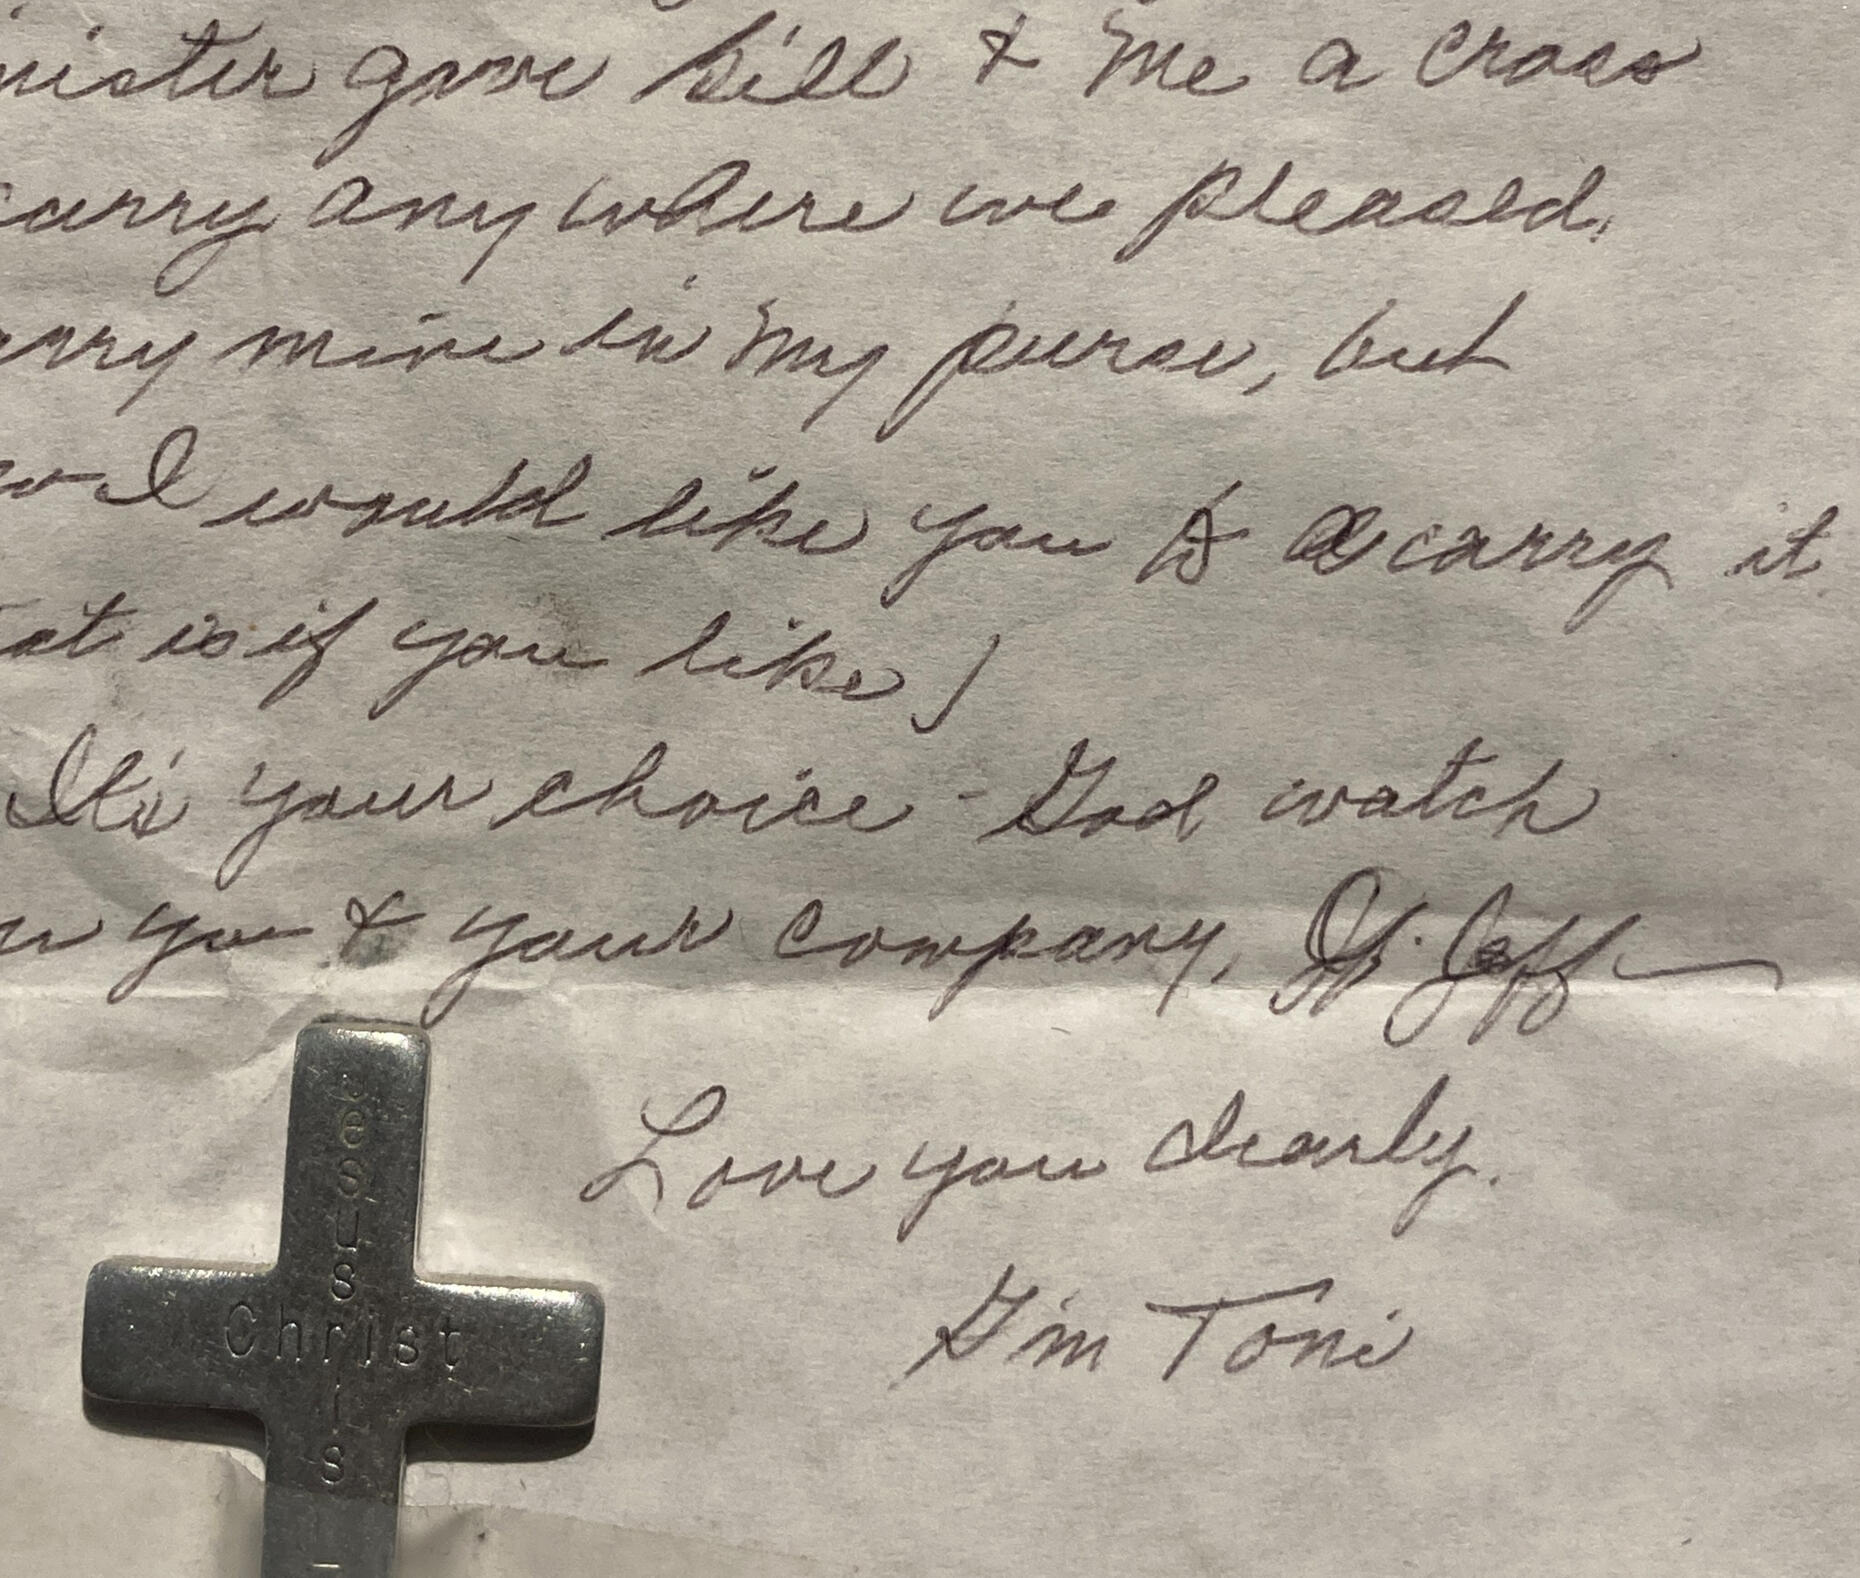 nister gave Bill & me a cross
carry any where we pleased.
arry mine in my purse, but
I would like you to carry it
at is if you like)
It's your choice - God watch
you & your company, Jeff
Love you dearly.
Gim Toni
Jesus
Christ
is
L